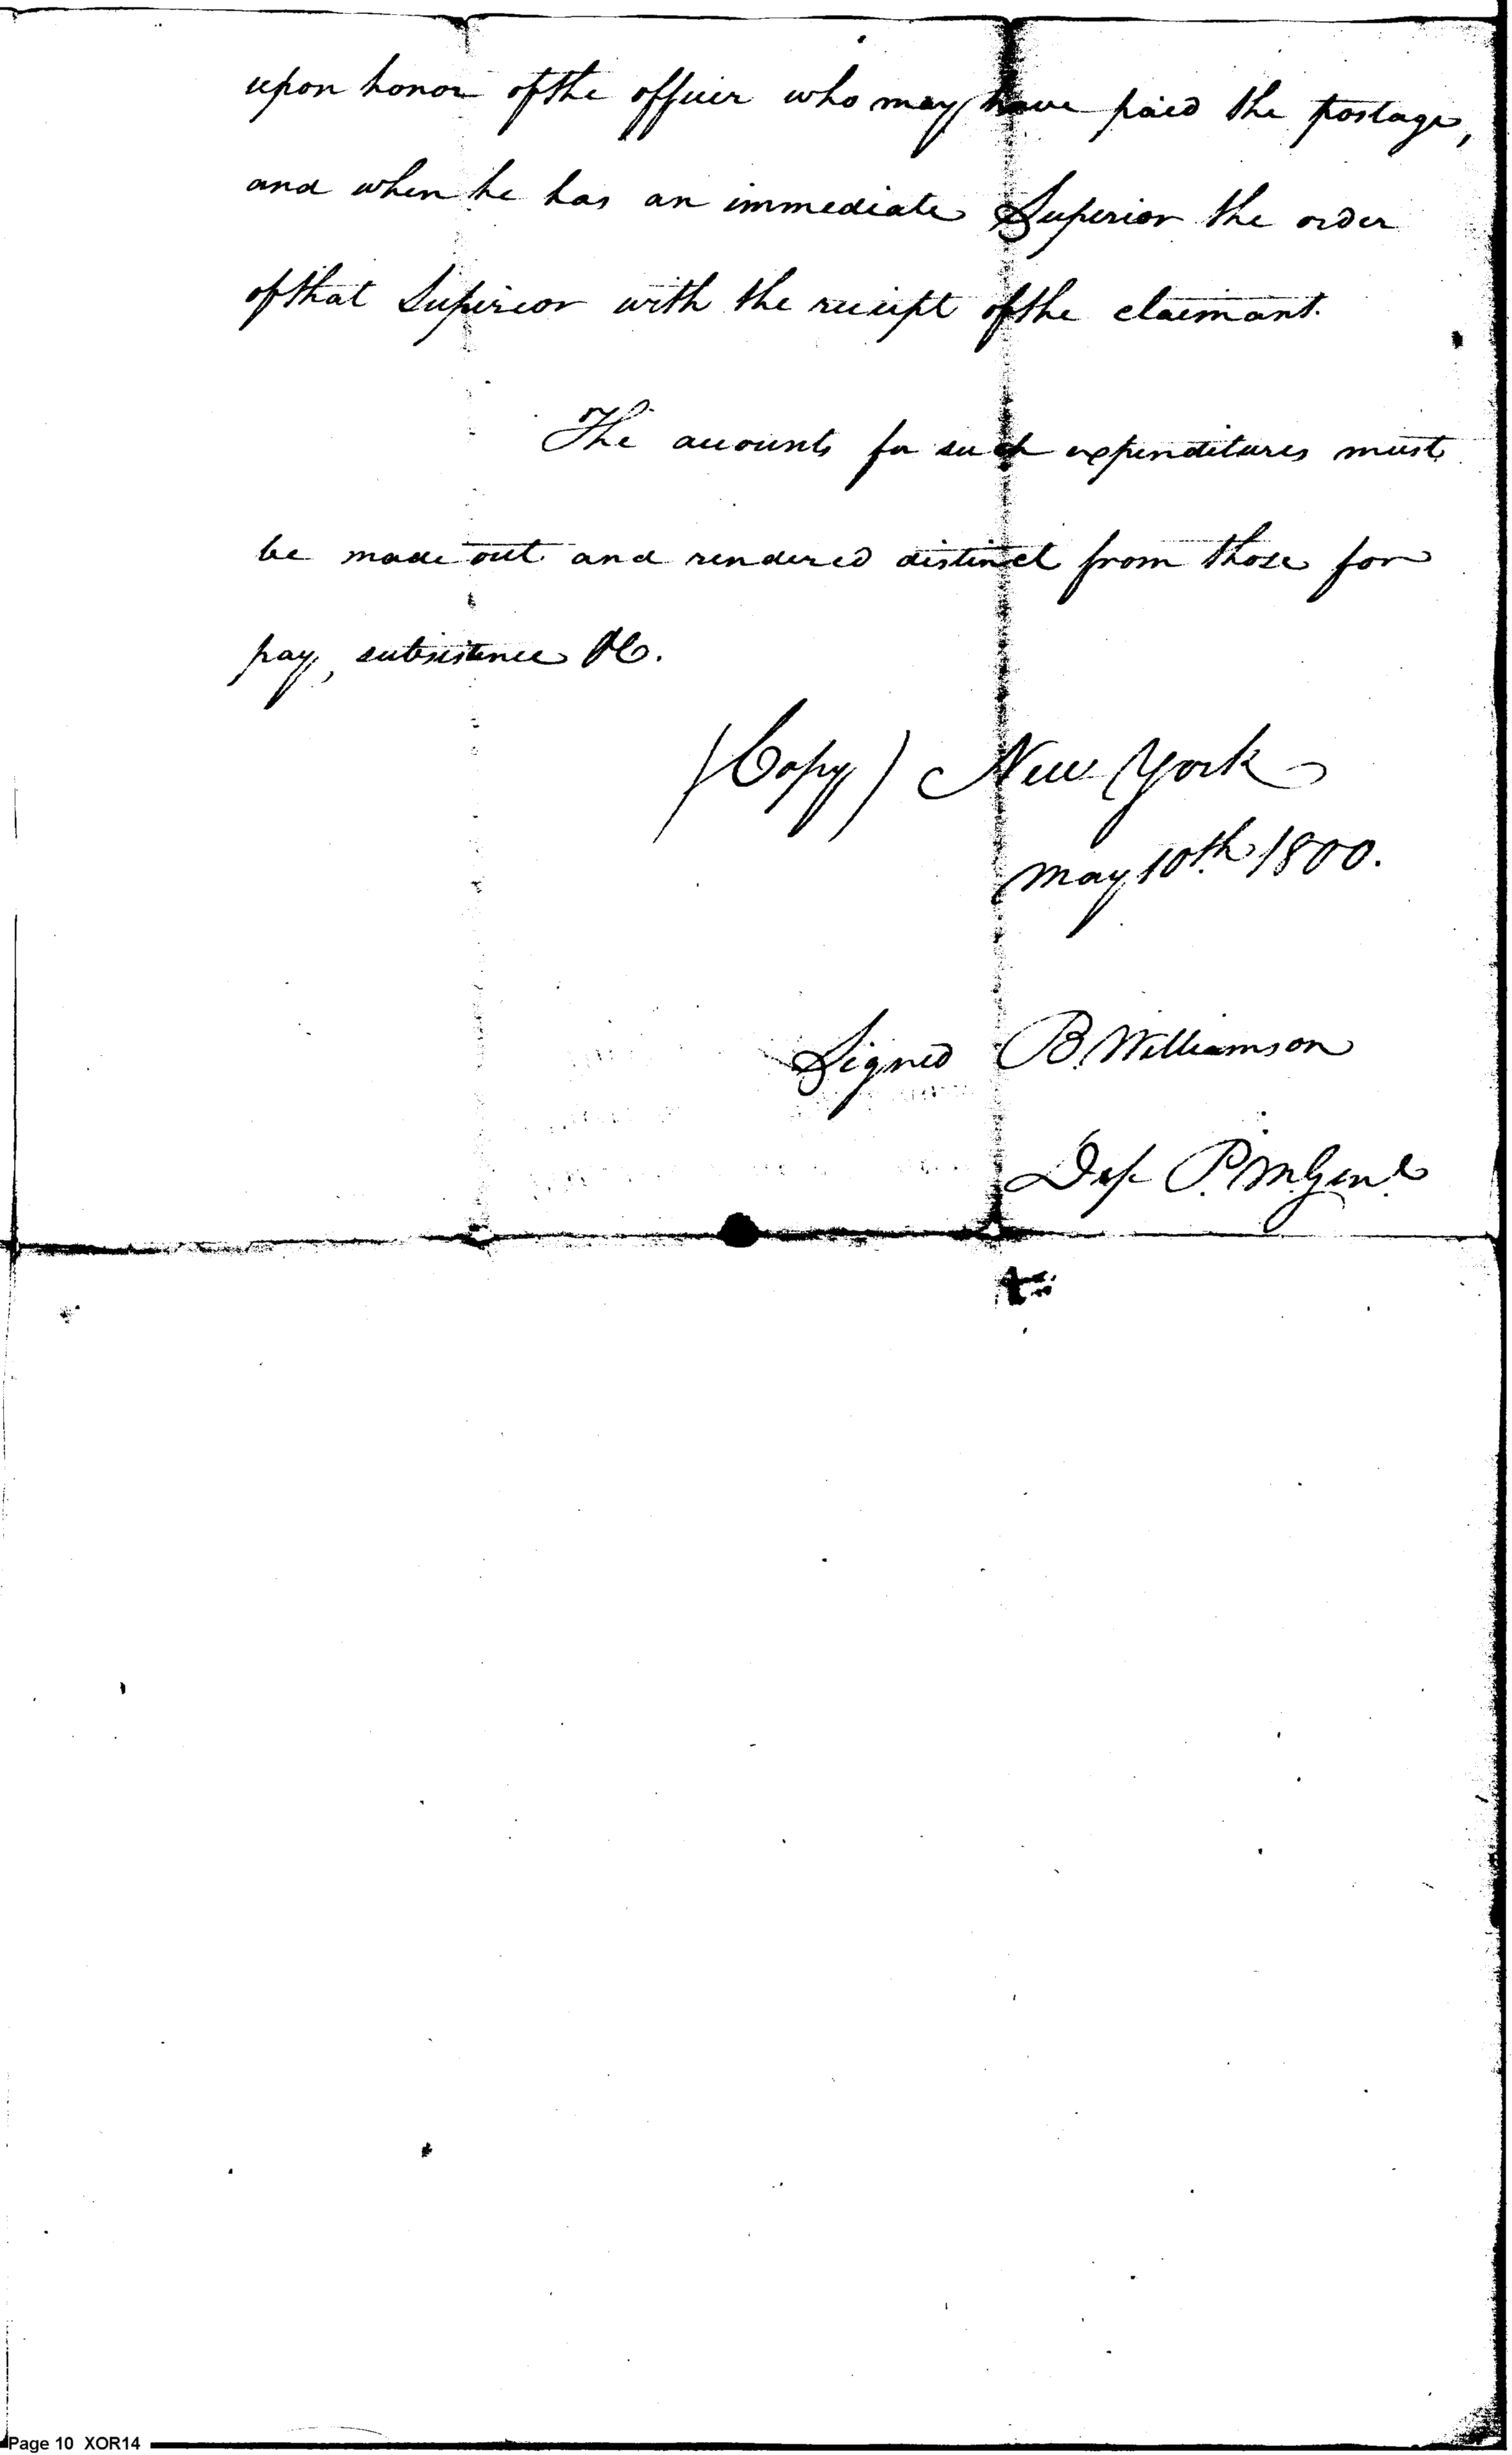 upon honor of the officer who may have paid the postage,
and when he has an immediate Superior the order
of that Superior with the receipt of the claimant.
The accounts for such expenditures must
be made out and rendered distinct from those for
pay, subsistence &c.
(Copy) New York
May 10th. 1800.
Signed B. Williamson
Dep P. M. Genl.
Page 10 XOR14